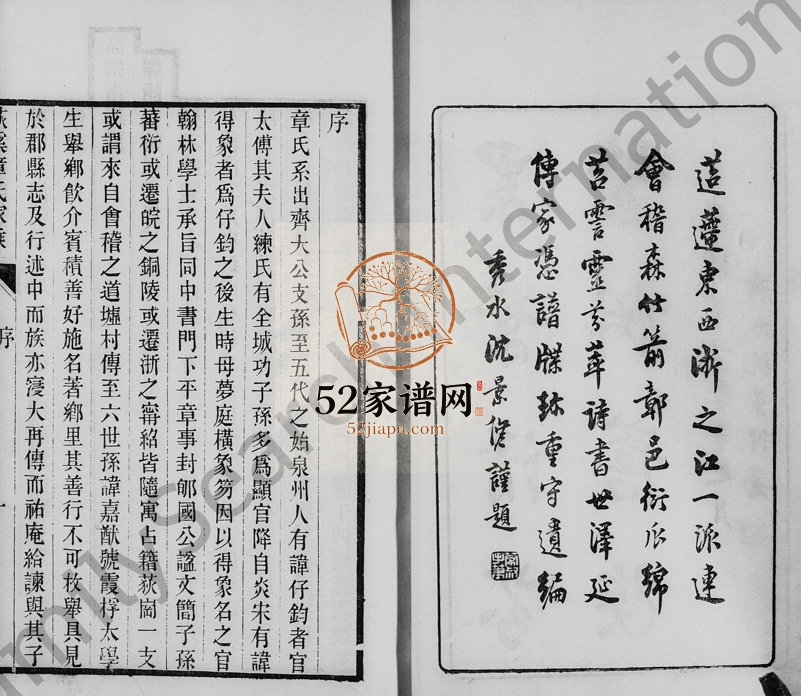 迢遞東西淛之江一派連
會稽森竹箭鄣邑衍瓜緜
苕霅靈芬萃詩書世澤延
傳家憑譜牒珍重守遺編
秀水沈景修謹題
序
章氏系出齊大公支孫至五代之始泉州人有諱仔鈞者官
太傅其夫人練氏有全城功子孫多爲顯官降自炎宋有諱
得象者爲仔鈞之後生時母夢庭橫象笏因以得象名之官
翰林學士承旨同中書門下平章事封郇國公諡文簡子孫
蕃衍或遷皖之銅陵或遷浙之甯紹皆隨寓占籍荻崗一支
或謂來自會稽之道墟村傳至六世孫諱嘉猷號霞桴太學
生舉鄉飮介賓積善好施名著鄉里其善行不可枚舉具見
於郡縣志及行述中而族亦寖大再傳而祐庵給諫與其子
荻溪章氏家乘
序
一
52家谱网
52jiapu.com
FamilySearch International